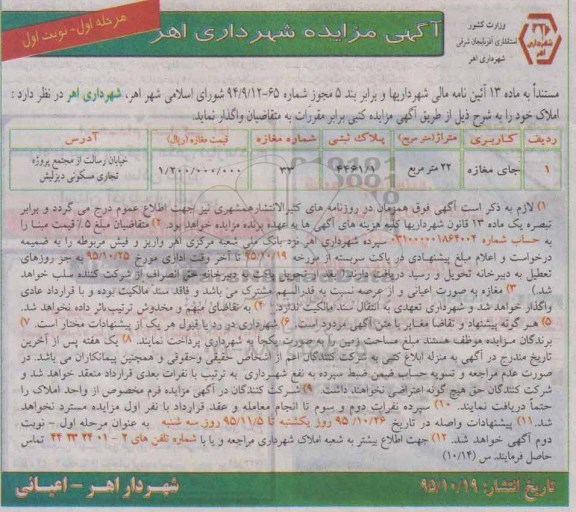 مرحله اول - نوبت اول
آگهی مزایده شهرداری اهر
وزارت کشور
استانداری آذربایجان شرقی
شهرداری اهر
شهرداری
اهر
مستنداً به ماده ۱۳ آئین نامه مالی شهرداریها و برابر بند ۵ مجوز شماره ۶۵-۹۴/۹/۱۲ شورای اسلامی شهر اهر، شهرداری اهر در نظر دارد :
املاک خود را به شرح ذیل از طریق آگهی مزایده کتبی برابر مقررات به متقاضیان واگذار نماید.
ردیف کاربری متراژ(متر مربع) پلاک ثبتی شماره مغازه قیمت مغازه (ریال) آدرس
۱ جای مغازه ۲۲ متر مربع ۴۴۶۱/۱ ۳۳ ۱/۲۰۰/۰۰۰/۰۰۰ خیابان رسالت از مجتمع پروژه
تجاری مسکونی دیزلیش
۱) لازم به ذکر است آگهی فوق همزمان در روزنامه های کثیرالانتشار همشهری نیز جهت اطلاع عموم درج می گردد و برابر
تبصره یک ماده ۱۳ قانون شهرداریها کلیه هزینه های آگهی ها به عهده برنده مزایده خواهد بود. ۲) متقاضیان مبلغ ۵٪ قیمت مبنا را
به حساب شماره ۰۳۱۰۰۰۰۱۸۶۴۰۰۴ سپرده شهرداری اهر نزد بانک ملی شعبه مرکزی اهر واریز و فیش مربوطه را به ضمیمه
درخواست و اعلام مبلغ پیشنهادی در پاکت سربسته از مورخه ۹۵/۱۰/۱۹ تا آخر وقت اداری مورخ ۹۵/۱۰/۲۵ به جز روزهای
تعطیل به دبیرخانه تحویل و رسید دریافت دارند( بعد از تحویل پاکت به دبیرخانه حق انصراف از شرکت کننده سلب خواهد
شد.) ۳) مغازه به صورت اعیانی و از عرصه نسبت به قدرالسهم مشترک می باشد و فاقد سند مالکیت بوده و با قرارداد عادی
واگذار خواهد شد و شهرداری تعهدی به انتقال سند مالکیت ندارد. ۴) به تقاضای مبهم و مخدوش ترتیب اثر داده نخواهد شد.
۵) هر گونه پیشنهاد و تقاضا مغایر با متن آگهی مردود است. ۶) شهرداری در رد یا قبول هر یک از پیشنهادات مختار است. ۷)
برندگان مزایده موظف هستند مبلغ مساحت زمین را به صورت یکجا به شهرداری پرداخت نمایند. ۸) یک هفته پس از آخرین
تاریخ مندرج در آگهی به منزله ابلاغ کتبی به شرکت کنندگان اعم از اشخاص حقیقی وحقوقی و همچنین پیمانکاران می باشد. در
صورت عدم مراجعه و تسویه حساب ضمن ضبط سپرده به نفع شهرداری به ترتیب با نفرات بعدی قرارداد منعقد خواهد شد و
شرکت کنندگان حق هیچ گونه اعتراضی نخواهند داشت. ۹) شرکت کنندگان در آگهی مزایده فرم مخصوص از واحد املاک را
حتماً دریافت نمایند. ۱۰) سپرده نفرات دوم و سوم تا انجام معامله و عقد قرارداد با نفر اول مزایده مسترد نخواهد
شد. ۱۱) پیشنهادات واصله در تاریخ ۹۵/۱۰/۲۶ روز یکشنبه تا ۹۵/۱۱/۵ روز سه شنبه به عنوان مرحله اول - نوبت
دوم آگهی خواهد شد. ۱۲) جهت اطلاع بیشتر به شعبه املاک شهرداری مراجعه و یا با شماره تلفن های ۲ - ۲۴۰۱ ۳۳ ۴۴ تماس
حاصل فرمایند. س (۱۰/۱۴)
تاریخ انتشار: ۹۵/۱۰/۱۹
شهردار اهر - اعیانی